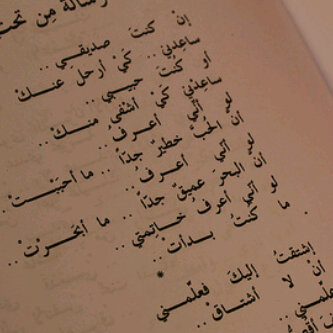 رسالة من تحت
إن كنتَ صديقي ..
ساعدني .. كَيْ أرحلَ عنكْ
أو كُنتَ حبيبي ..
ساعدني كَيْ أشفى منكْ ..
لو أنّي أعرفُ ..
أن الحُبَّ خطيرٌ جدّاً .. ما أحببتْ
لو أنّي أعرفُ ..
أن البحرَ عميقٌ جدّاً .. ما أبحرتْ ..
لو أنّي أعرفُ خاتمتي ..
ما كنتُ بدأتْ ..
*
إشتقتُ إليكَ فعلّمني
أنْ لا أشتاقْ ..
علّمني